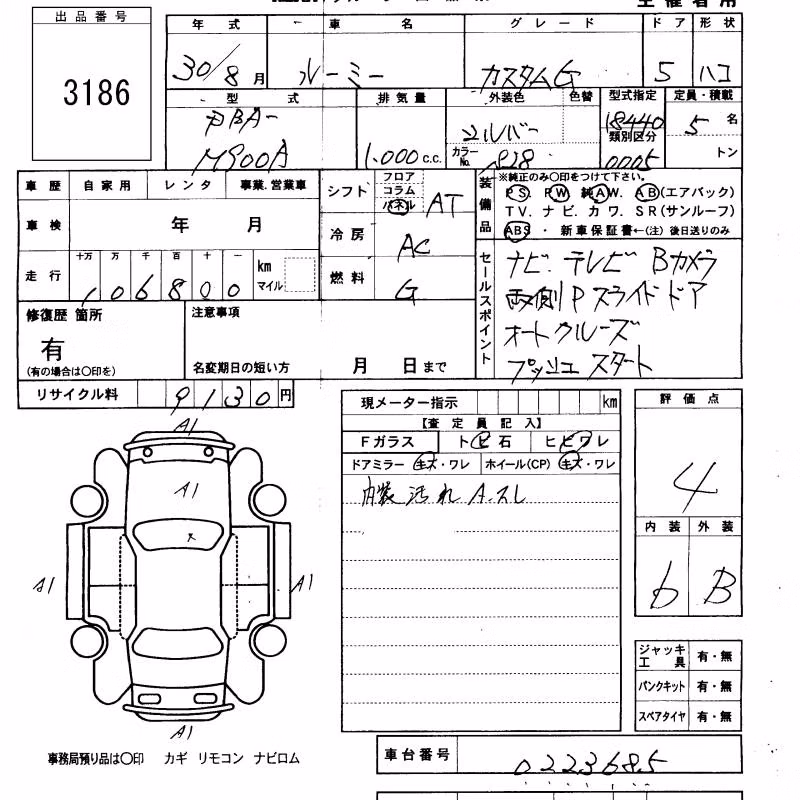 出品番号
3186
主催者用
年式 車名 グレード ドア 形状
30/8月 ルーミー カスタムG 5 ハコ
型式 排気量 外装色 色替 型式指定 定員・積載
DBA-
M900A
1,000 c.c.
シルバー
カラーNo. S28
18440
類別区分
0005
5 名
トン
車歴 自家用 レンタ 事業.営業車
車検 年 月
走行 十万 万 千 百 十 一
106800
km
マイル
シフト フロア
コラム
パネル AT
冷房 AC
燃料 G
装備品
※純正のみ〇印をつけて下さい。
PS. PW 純AW. AB(エアバック)
TV. ナビ. カワ. SR(サンルーフ)
ABS ・ 新車保証書←(注) 後日送りのみ
セールスポイント
ナビ. テレビ Bカメラ
両側Pスライドドア
オートクルーズ
プッシュスタート
修復歴 箇所
有
(有の場合は〇印を)
注意事項
名変期日の短い方 月 日まで
リサイクル料 9130円
A1
A1
A1
A1
A1
事務局預り品は〇印 カギ リモコン ナビロム
現メーター指示 km
【査定員記入】
Fガラス トビ石 ヒビワレ
ドアミラー キズ・ワレ ホイール(CP) キズ・ワレ
内装 汚れ A.スレ
評価点
4
内装 外装
b B
ジャッキ
工具 有・無
パンクキット 有・無
スペアタイヤ 有・無
車台番号 0223685